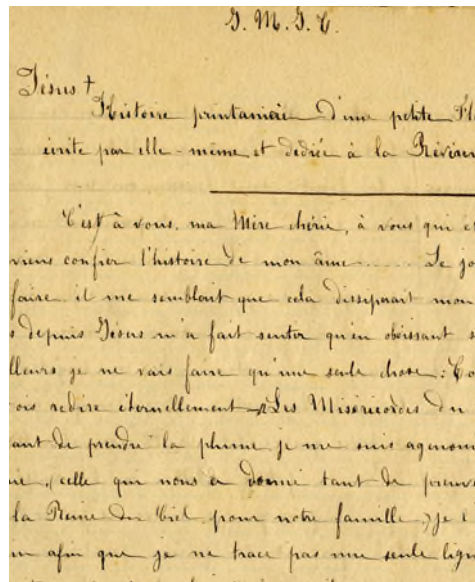 J. M. J. T.
Jésus †
Histoire printanière d'une petite Fl
écrite par elle-même et dédiée à la Révéren
C'est à vous, ma Mère chérie, à vous qui êt
viens confier l'histoire de mon âme..... Le jo
faire, il me semblait que cela dissiperait mon
s depuis Jésus m'a fait sentir qu'en obéissant s
lleurs je ne vais faire qu'une seule chose : Co
ois redire éternellement "Les Miséricordes du
ant de prendre la plume, je me suis agenoui
ie, (celle qui nous a donné tant de preuve
la Reine du Ciel pour notre famille,) je l
n afin que je ne trace pas une seule lign